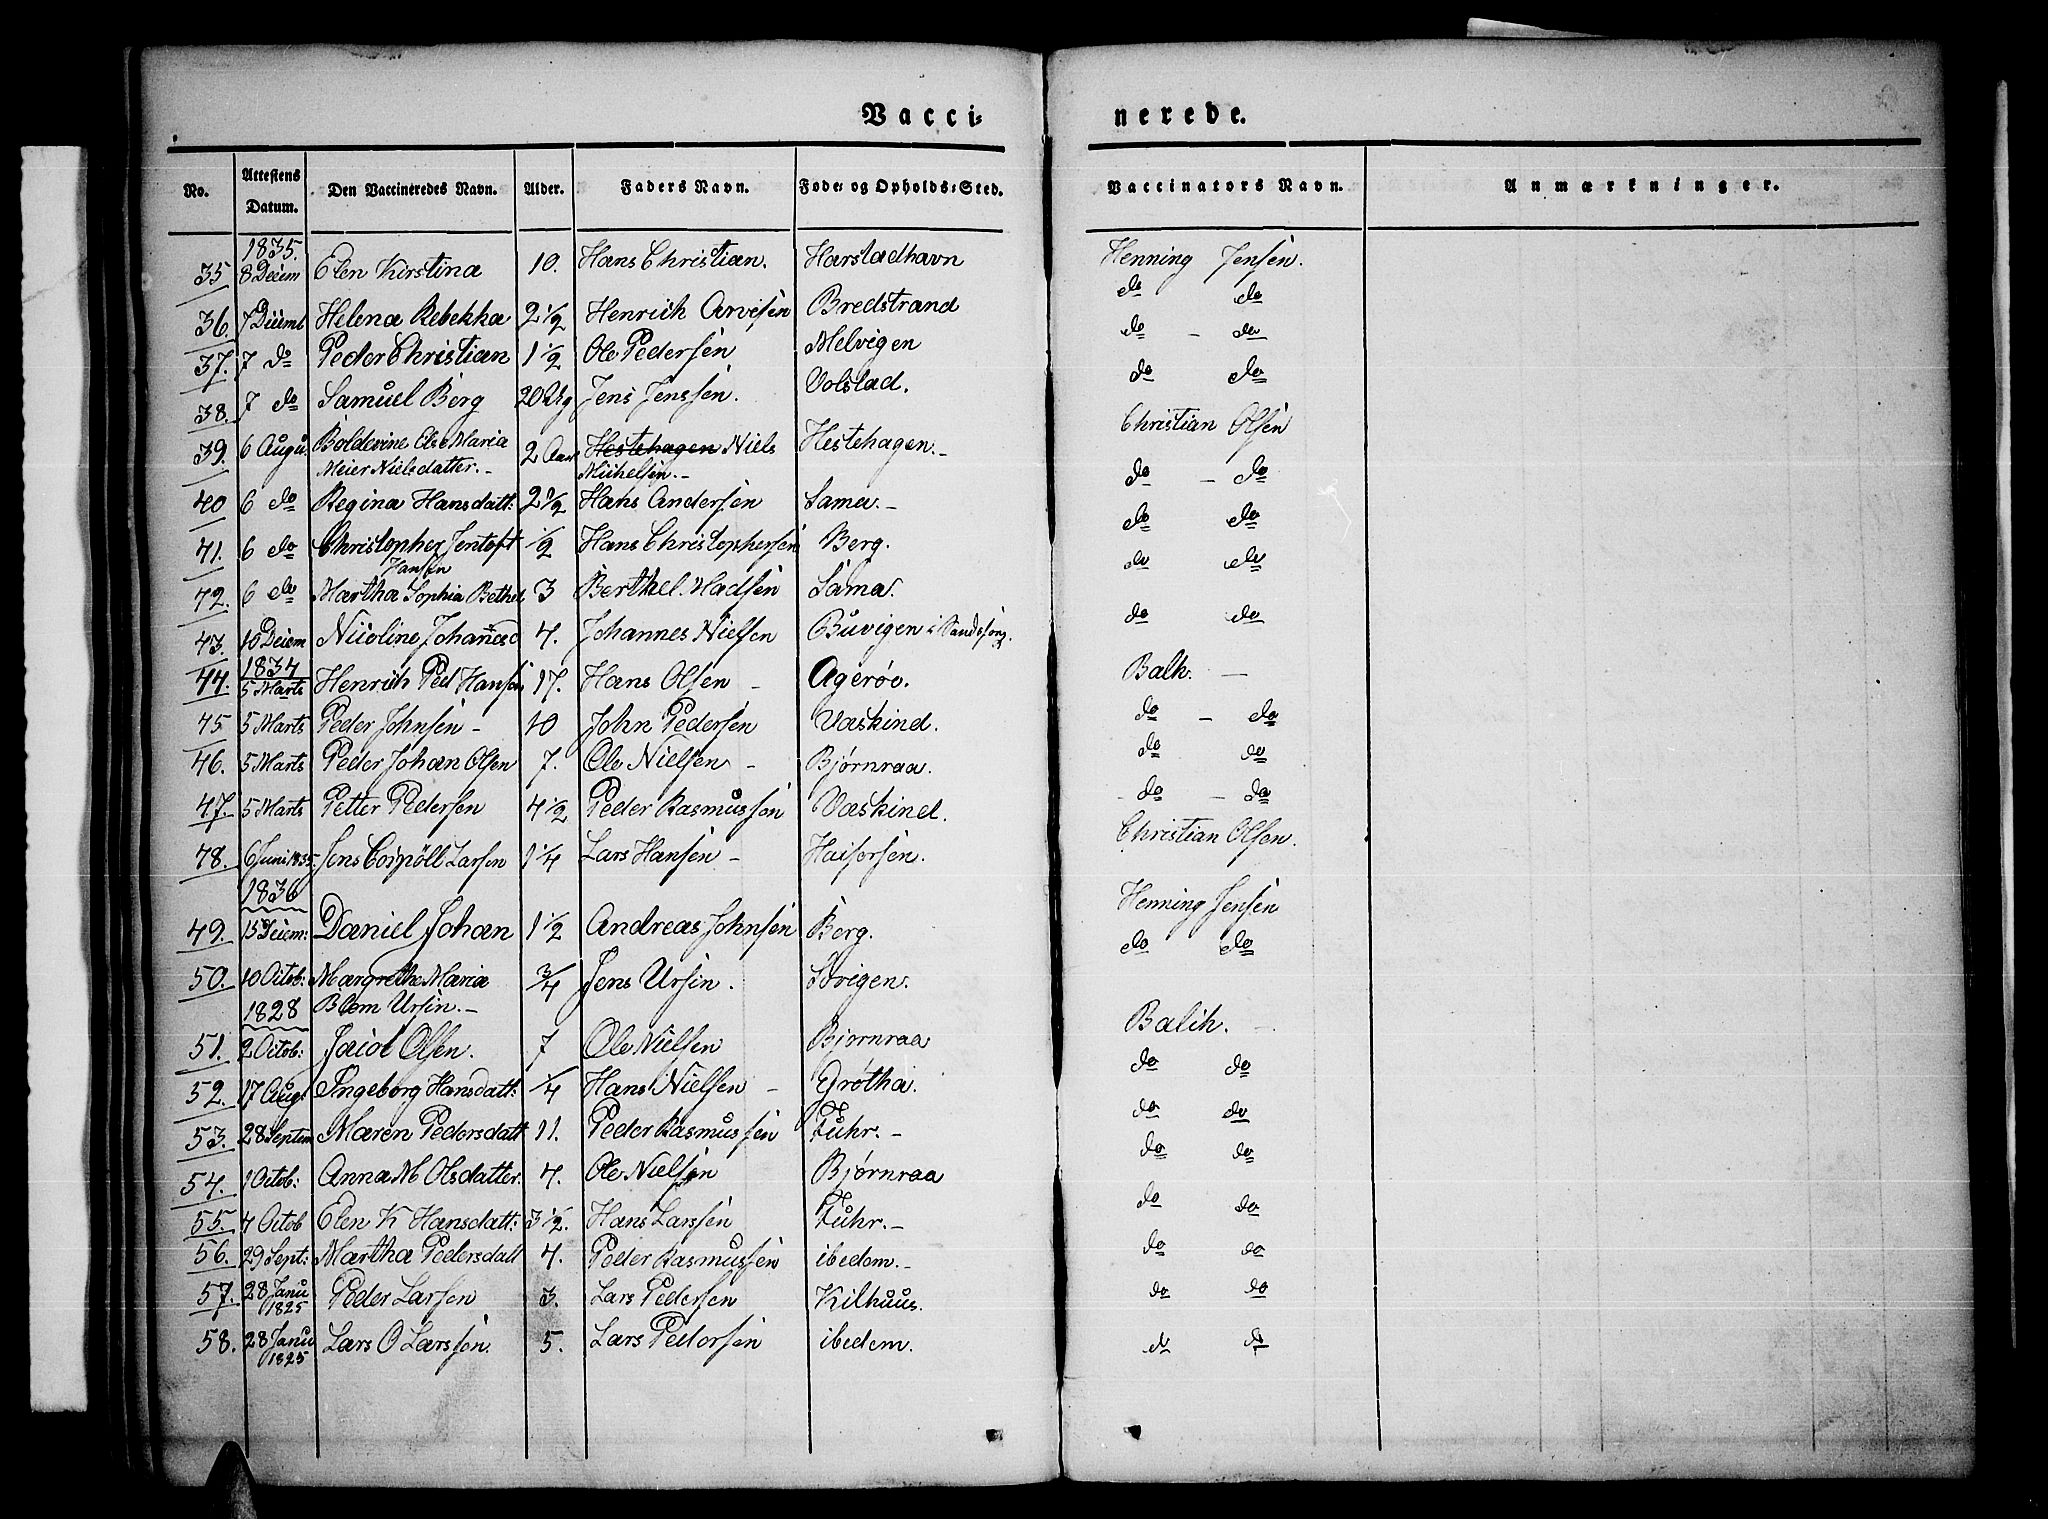 Vacci- nerede.
No. Attestens Datum. Den Vaccineredes Navn. Alder. Faders Navn. Føde- og Opholds-Sted. Vaccinators Navn. Anmærkninger.
1835.
35 8 Decem Elen Kirstina 10. Hans Christian. Harstadhavn Henning Jensen.
36. 7 Decemb Helena Rebekka 2 1/2 Henrich Arvesen Bredstrand do do
37. 7 do Peder Christian 1 1/2 Ole Pedersen Melvigen do - do
38. 7 do Samuel Berg 20 Ug Jens Jenssen. Volstad. do do
39. 6 Augu. Boldevine Else Maria 2 Aar Hestehagen Niels Hestehagen. - Christian Olsen
Meier Nielsdatter. - Michelsen. -
40 6 do Regina Hansdatt: 2 1/2 Hans Andersen Sama. - do - do
41. 6 do Christopher Jentoft 1/2 Hans Christophersen Berg. do do
Hansen
42. 6 do Martha Sophia Bethel 3 Berthel Madsen Sama. do do
43. 10 Decem Nicoline Johannesd 4. Johannes Nielsen Buvigen i Sandsforg. do do
1834
44. 5 Marts Henrich Ped Hansen 17. Hans Olsen - Agerøe. Balk. -
45 5 Marts Peder Johnsen - 10 John Pedersen Vaskind. do - do
46. 5 Marts Peder Johan Olsen 7. Ole Nielsen - Bjørnraa. do do
47. 5 Marts Petter Pedersen 4 1/2 Peder Rasmussen Vaskind. - do - do
48. 6 Juni 1835. Jens Larsen 1 1/4 Lars Hansen - Christian Olsen.
1836
49. 15 Decem: Daniel Johan 1 1/2 Andreas Johnsen Berg. Henning Jensen
50. 10 Octob: Margrethe Maria 3/4 Jens Ursin. do do
1828 Blom Ursin. -
51. 2 Octob: Jacob Olsen. 7 Ole Nielsen Bjørnraa Balch. -
52. 17 Aug: Ingeborg Hansdatt: 1/4 Hans Nielsen - Grøtha. do do
53. 28 Septem Maren Pedersdatt 11. Peder Rasmussen Fuhr. - do do
54. 1 Octob: Anna M Olsdatter. 4. Ole Nielsen Bjørnraa do do
55. 4 Octob Elen K Hansdatt: 3 1/2. Hans Larssen Fuhr. - do do
56. 29 Sept: Martha Pedersdatt 4. Peder Rasmussen ibedem. - do do
57. 28 Janu 1825 Peder Larsen 3. Lars Pedersen Kilhuus. do do
58. 28 Janu 1825 Lars O Larssen. 5. Lars Pedersen ibedem. do do